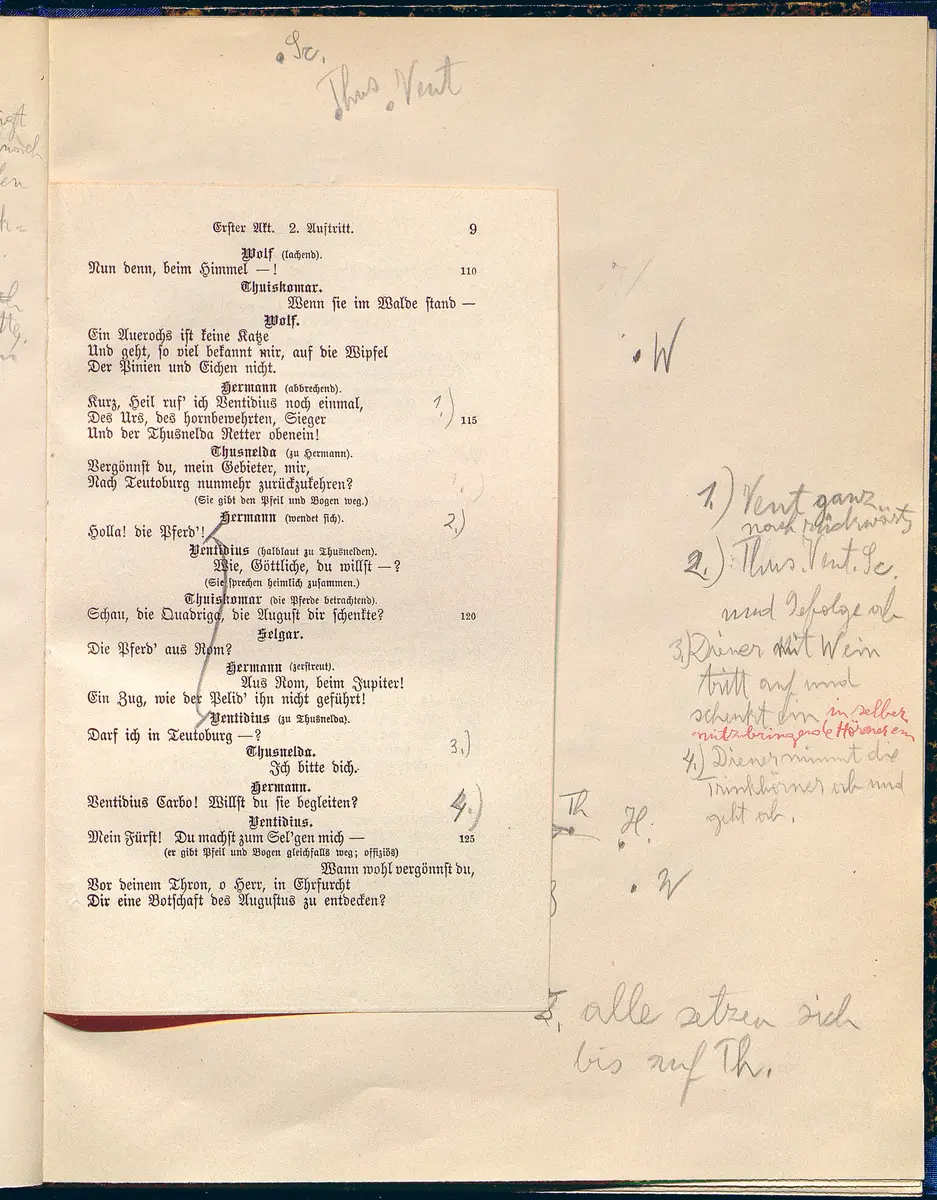 Sc.
Thus. Vent
Erster Akt. 2. Auftritt. 9
Wolf (lachend).
Nun denn, beim Himmel —! 110
Thuiskomar.
Wenn sie im Walde stand —
Wolf.
Ein Auerochs ist keine Katze
Und geht, so viel bekannt mir, auf die Wipfel
Der Pinien und Eichen nicht.
Hermann (abbrechend).
Kurz, Heil ruf' ich Ventidius noch einmal, 1.)
Des Urs, des hornbewehrten, Sieger 115
Und der Thusnelda Retter obenein!
Thusnelda (zu Hermann).
Vergönnst du, mein Gebieter, mir,
Nach Teutoburg nunmehr zurückzukehren?
(Sie gibt den Pfeil und Bogen weg.)
Hermann (wendet sich). 2.)
Holla! die Pferd'!
Ventidius (halblaut zu Thusnelden).
Wie, Göttliche, du willst —?
(Sie sprechen heimlich zusammen.)
Thuiskomar (die Pferde betrachtend).
Schau, die Quadriga, die August dir schenkte? 120
Selgar.
Die Pferd' aus Rom?
Hermann (zerstreut).
Aus Rom, beim Jupiter!
Ein Zug, wie der Pelid' ihn nicht geführt!
Ventidius (zu Thusnelda).
Darf ich in Teutoburg —?
Thusnelda. 3.)
Ich bitte dich.
Hermann.
Ventidius Carbo! Willst du sie begleiten? 4.)
Ventidius.
Mein Fürst! Du machst zum Sel'gen mich — 125
(er gibt Pfeil und Bogen gleichfalls weg; offiziös)
Wann wohl vergönnst du,
Vor deinem Thron, o Herr, in Ehrfurcht
Dir eine Botschaft des Augustus zu entdecken?
W
1.) Vent ganz
nach rückwärts
2.) Thus. Vent. Sc.
und Gefolge ab
3.) Diener mit Wein
tritt auf und
schenkt ein in selber
mitzubringende Hörner ein
4.) Diener nimmt die
Trinkhörner ab und
geht ab.
Th
H.
W
alle setzen sich
bis auf Th.